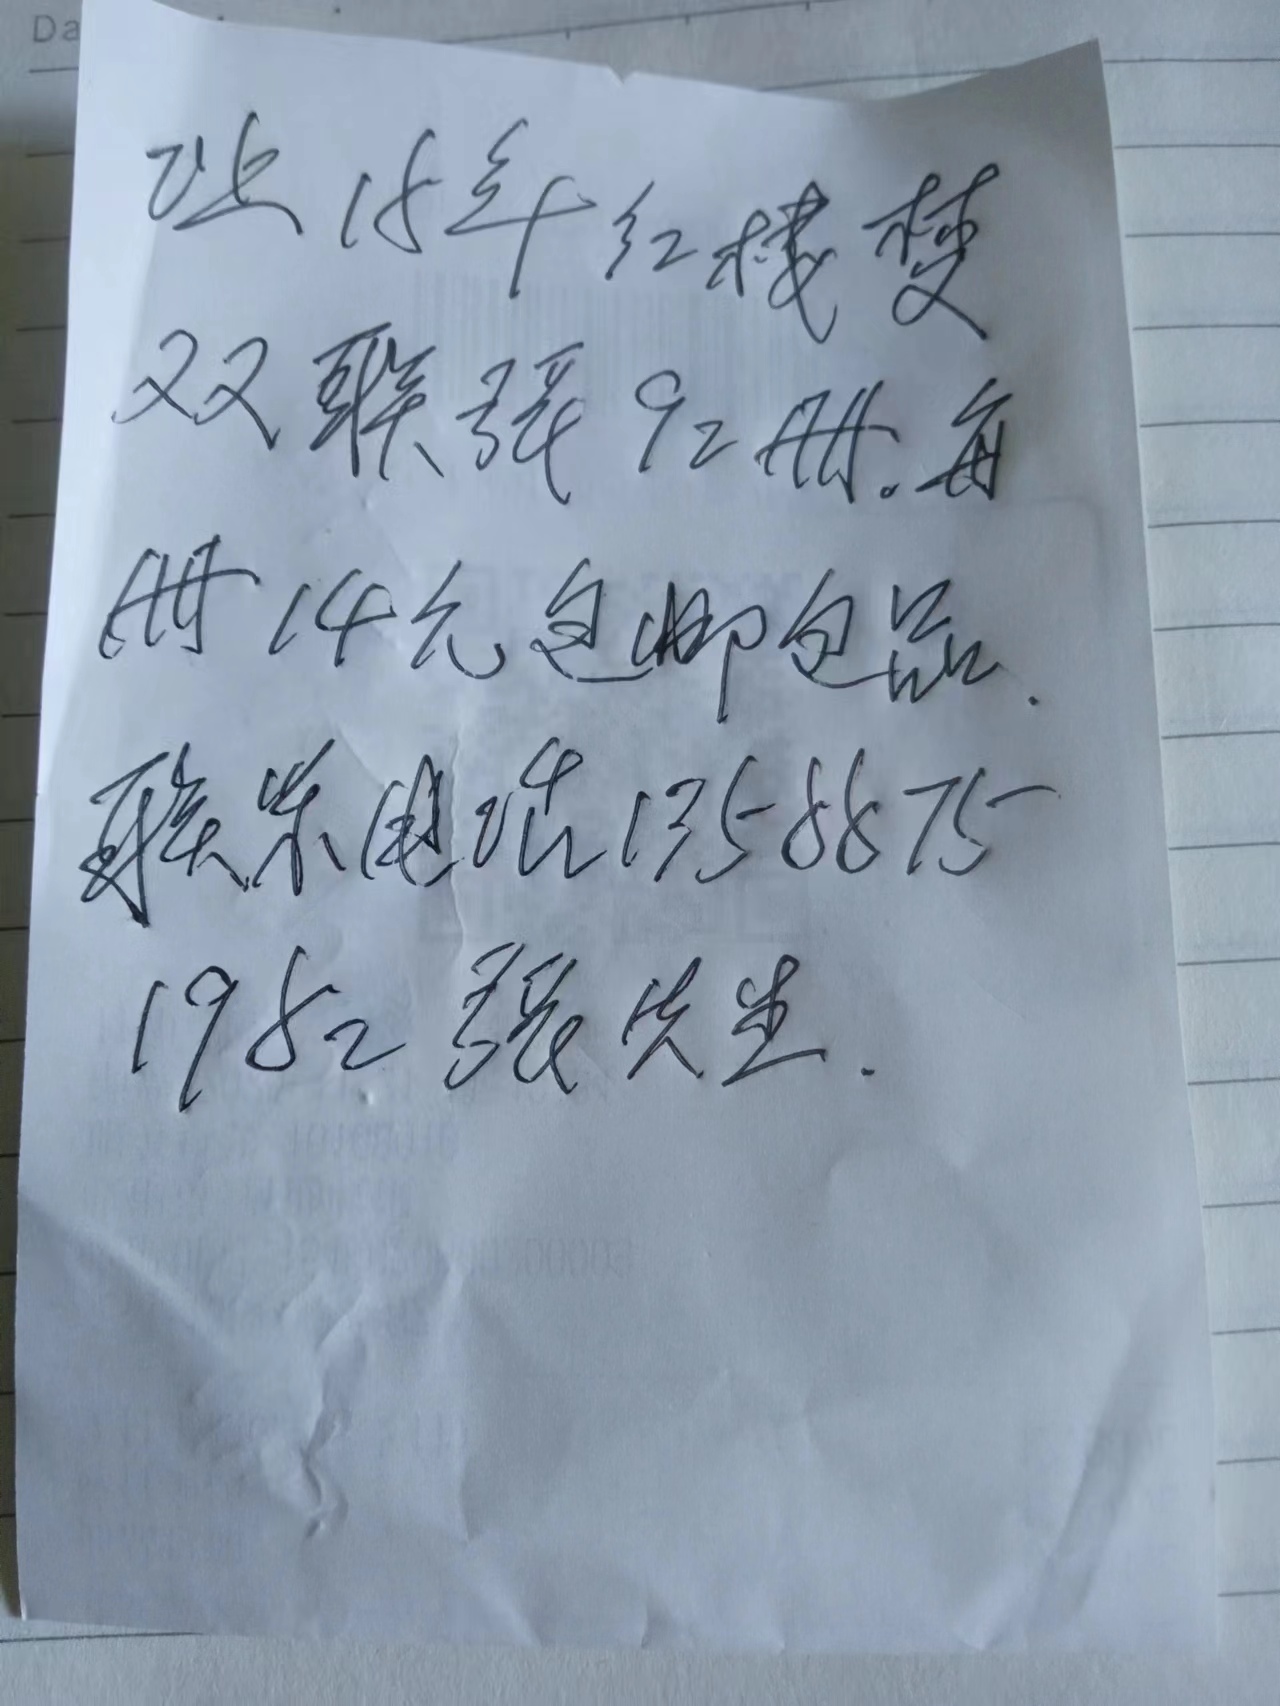 Da
让18年红楼梦
双联张92册.每
册14元包邮包品.
联系电话1358875
1982张先生.